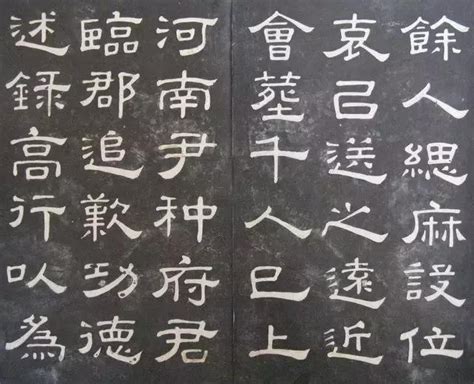 餘人緦麻設位
哀己送之遠近
會塟千人巳上
河南尹种府君
臨郡追歎功德
述録高行㕥為